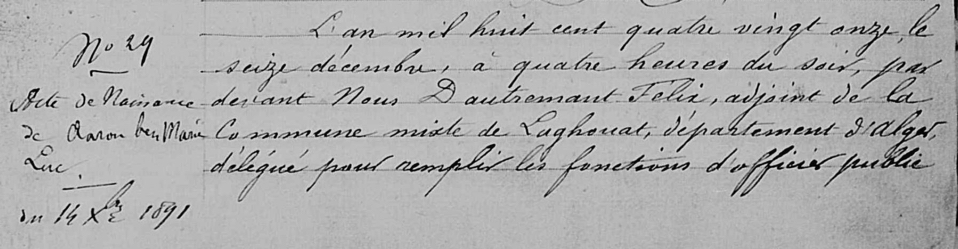 No 29
Acte de Naissance
de Aaron ben Marie
Luc.
du 14 Xbre 1891
L'an mil huit cent quatre vingt onze, le
seize décembre, à quatre heures du soir, par
devant Nous Dautremant Felix, adjoint de la
Commune mixte de Laghouat, département d'Alger,
délégué pour remplir les fonctions d'officier public